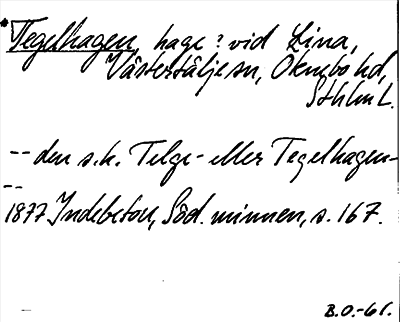 *Tegelhagen, hage? vid Lina,
Västertälje sn, Öknebo hd,
Sthlm L.
-- den s.k. Telge- eller Tegelhagen-
--
1877 Indebetou, Söd. minnen, s. 167.
B.O.-61.